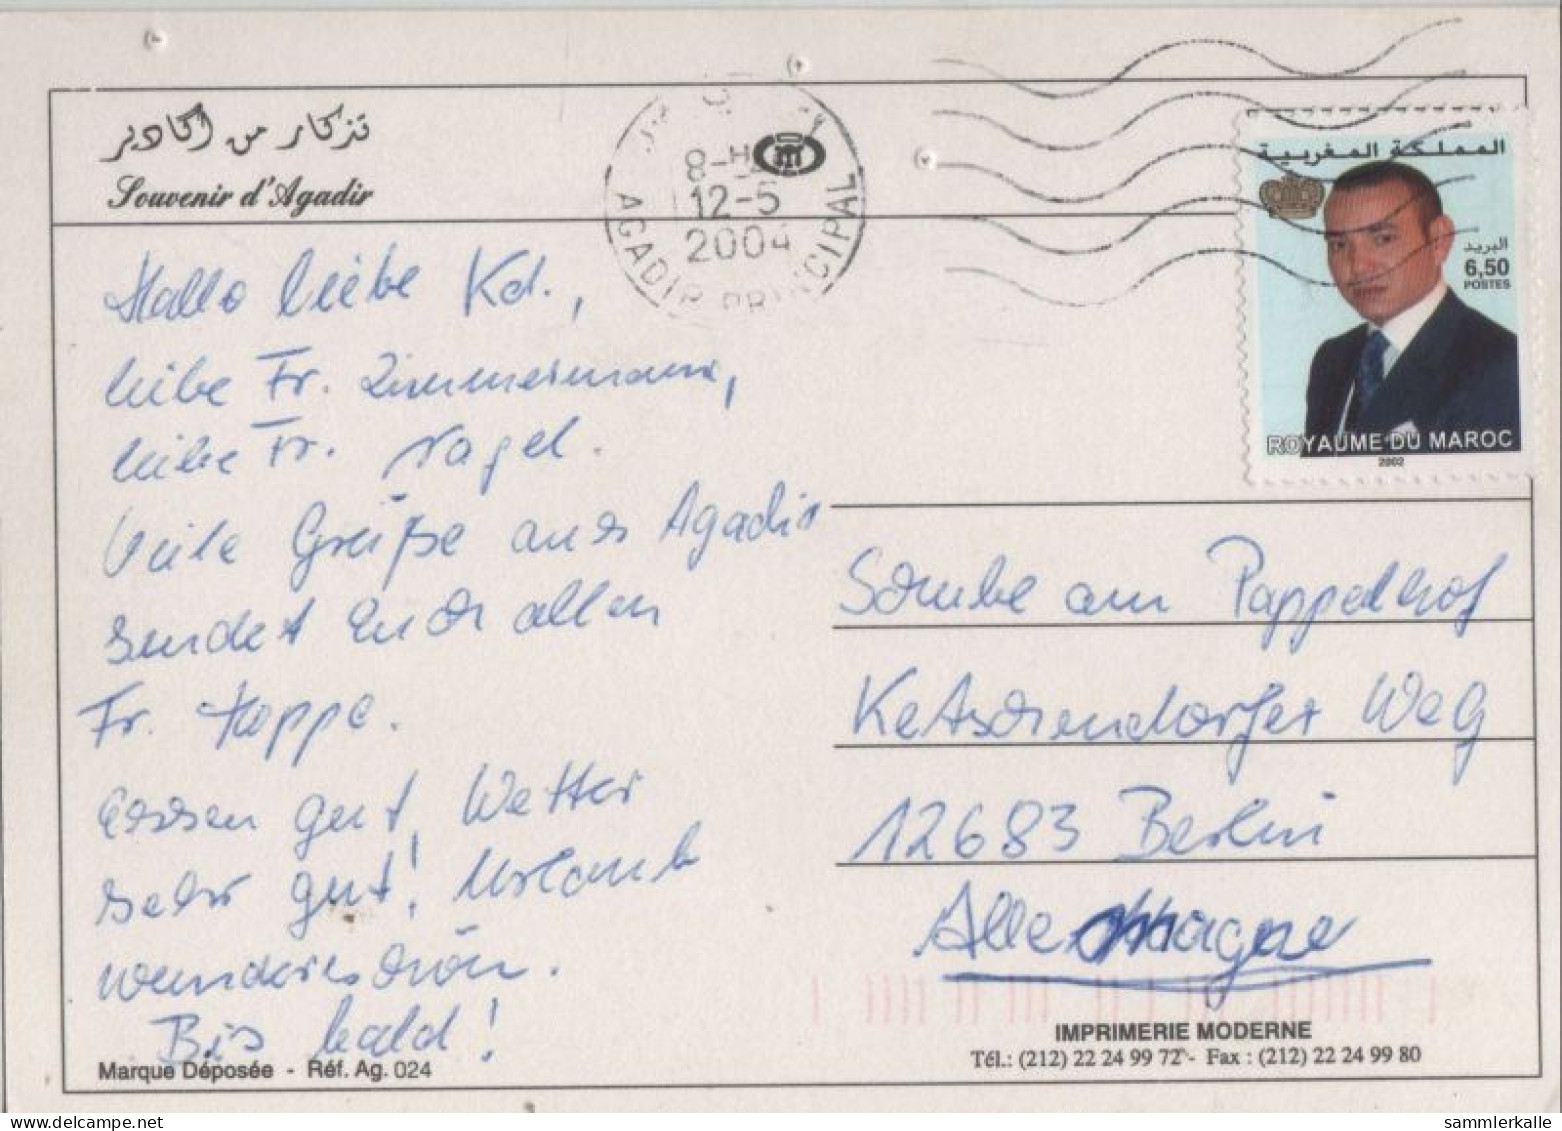 تذكار من أكادير
Souvenir d'Agadir
8-H
12-5
2004
AGADIR PRINCIPAL
المملكة المغربية
البريد
6,50
POSTES
ROYAUME DU MAROC
2002
Hallo liebe Kd.,
liebe Fr. Zimmermann,
liebe Fr. Nagel.
Viele Grüße aus Agadir
sendet Euch allen
Fr. Hoppe.
Essen gut, Wetter
sehr gut! Urlaub
wunderschön.
Bis bald!
Schule am Pappelhof
Ketschendorfer Weg
12683 Berlin
Allemagne
IMPRIMERIE MODERNE
Tél.: (212) 22 24 99 72 - Fax : (212) 22 24 99 80
Marque Déposée - Réf. Ag. 024
delcampe.net
sammlerkalle